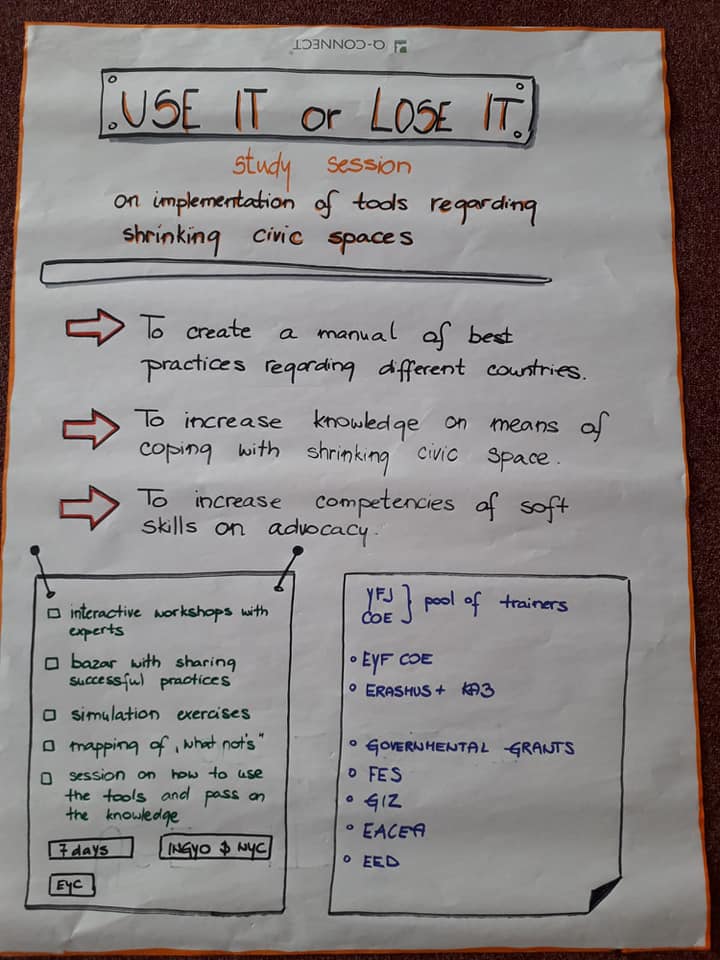 Q-CONNECT
USE IT or LOSE IT
study session
on implementation of tools regarding
shrinking civic spaces
To create a manual of best
practices regarding different countries.
To increase knowledge on means of
coping with shrinking civic space.
To increase competencies of soft
skills on advocacy.
interactive workshops with
experts
bazar with sharing
successful practices
simulation exercises
mapping of „what not's"
session on how to use
the tools and pass on
the knowledge
7 days
INGYO $ NYC
EYC
YFJ
COE } pool of trainers
EYF COE
ERASMUS+ KA3
GOVERNMENTAL GRANTS
FES
GIZ
EACEA
EED